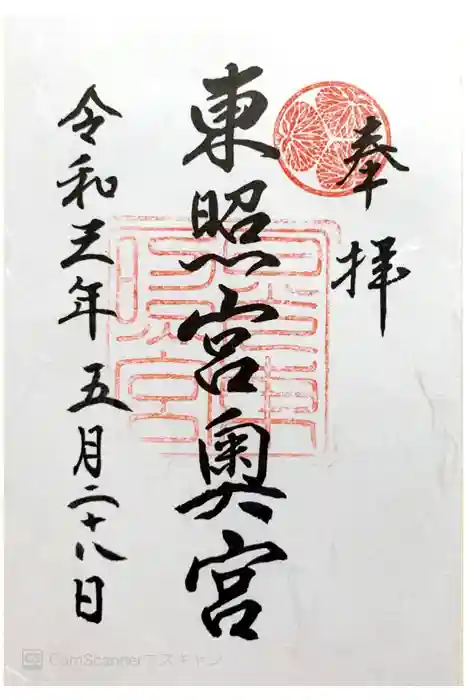 奉拝
東照宮奥宮
令和三年五月二十八日
CS CamScannerでスキャン